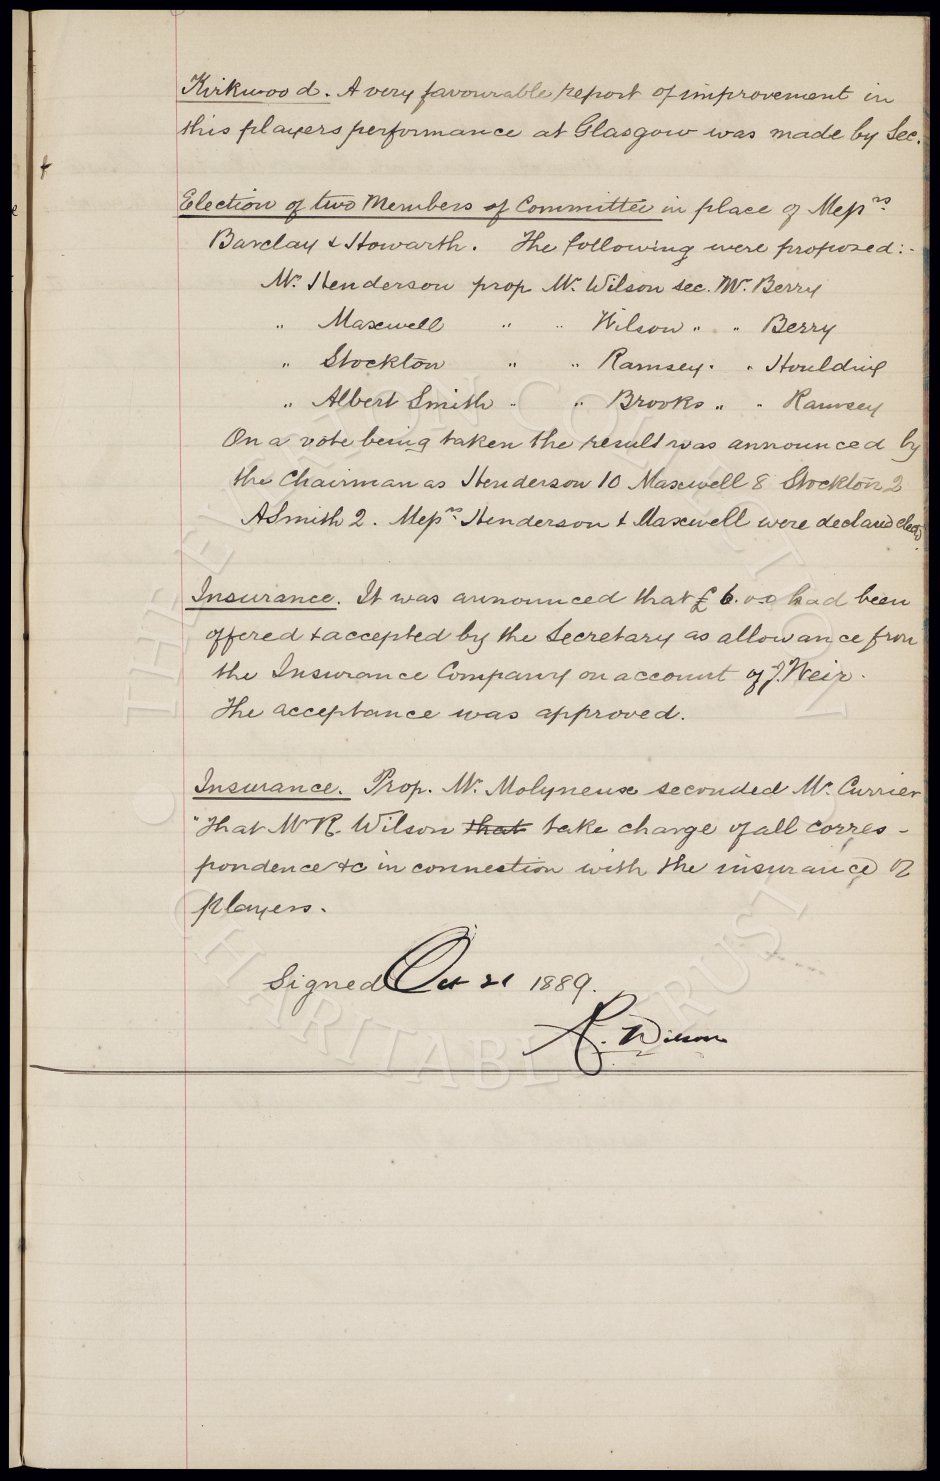 Kirkwood. A very favourable report of improvement in
this players performance at Glasgow was made by Sec.
Election of two Members of Committee in place of Messrs
Barclay & Howarth. The following were proposed:-
Mr. Henderson prop Mr. Wilson sec. Mr. Berry
" Maxwell " " Wilson " " Berry
" Stockton " " Ramsey " " Houlding
" Albert Smith " " Brooks " " Ramsey
On a vote being taken the result was announced by
the Chairman as Henderson 10 Maxwell 8 Stockton 2
A Smith 2. Messrs Henderson & Maxwell were declared elected.
Insurance. It was announced that £6.0.0 had been
offered & accepted by the Secretary as allowance from
the Insurance Company on account of J. Weir.
The acceptance was approved.
Insurance. Prop. Mr. Molyneux seconded Mr. Currier
"That Mr R. Wilson that take charge of all corres-
pondence &c in connection with the insurance of
players.
Signed Oct 21 1889.
R. Wilson
THE EVERTON COLLECTION
CHARITABLE TRUST